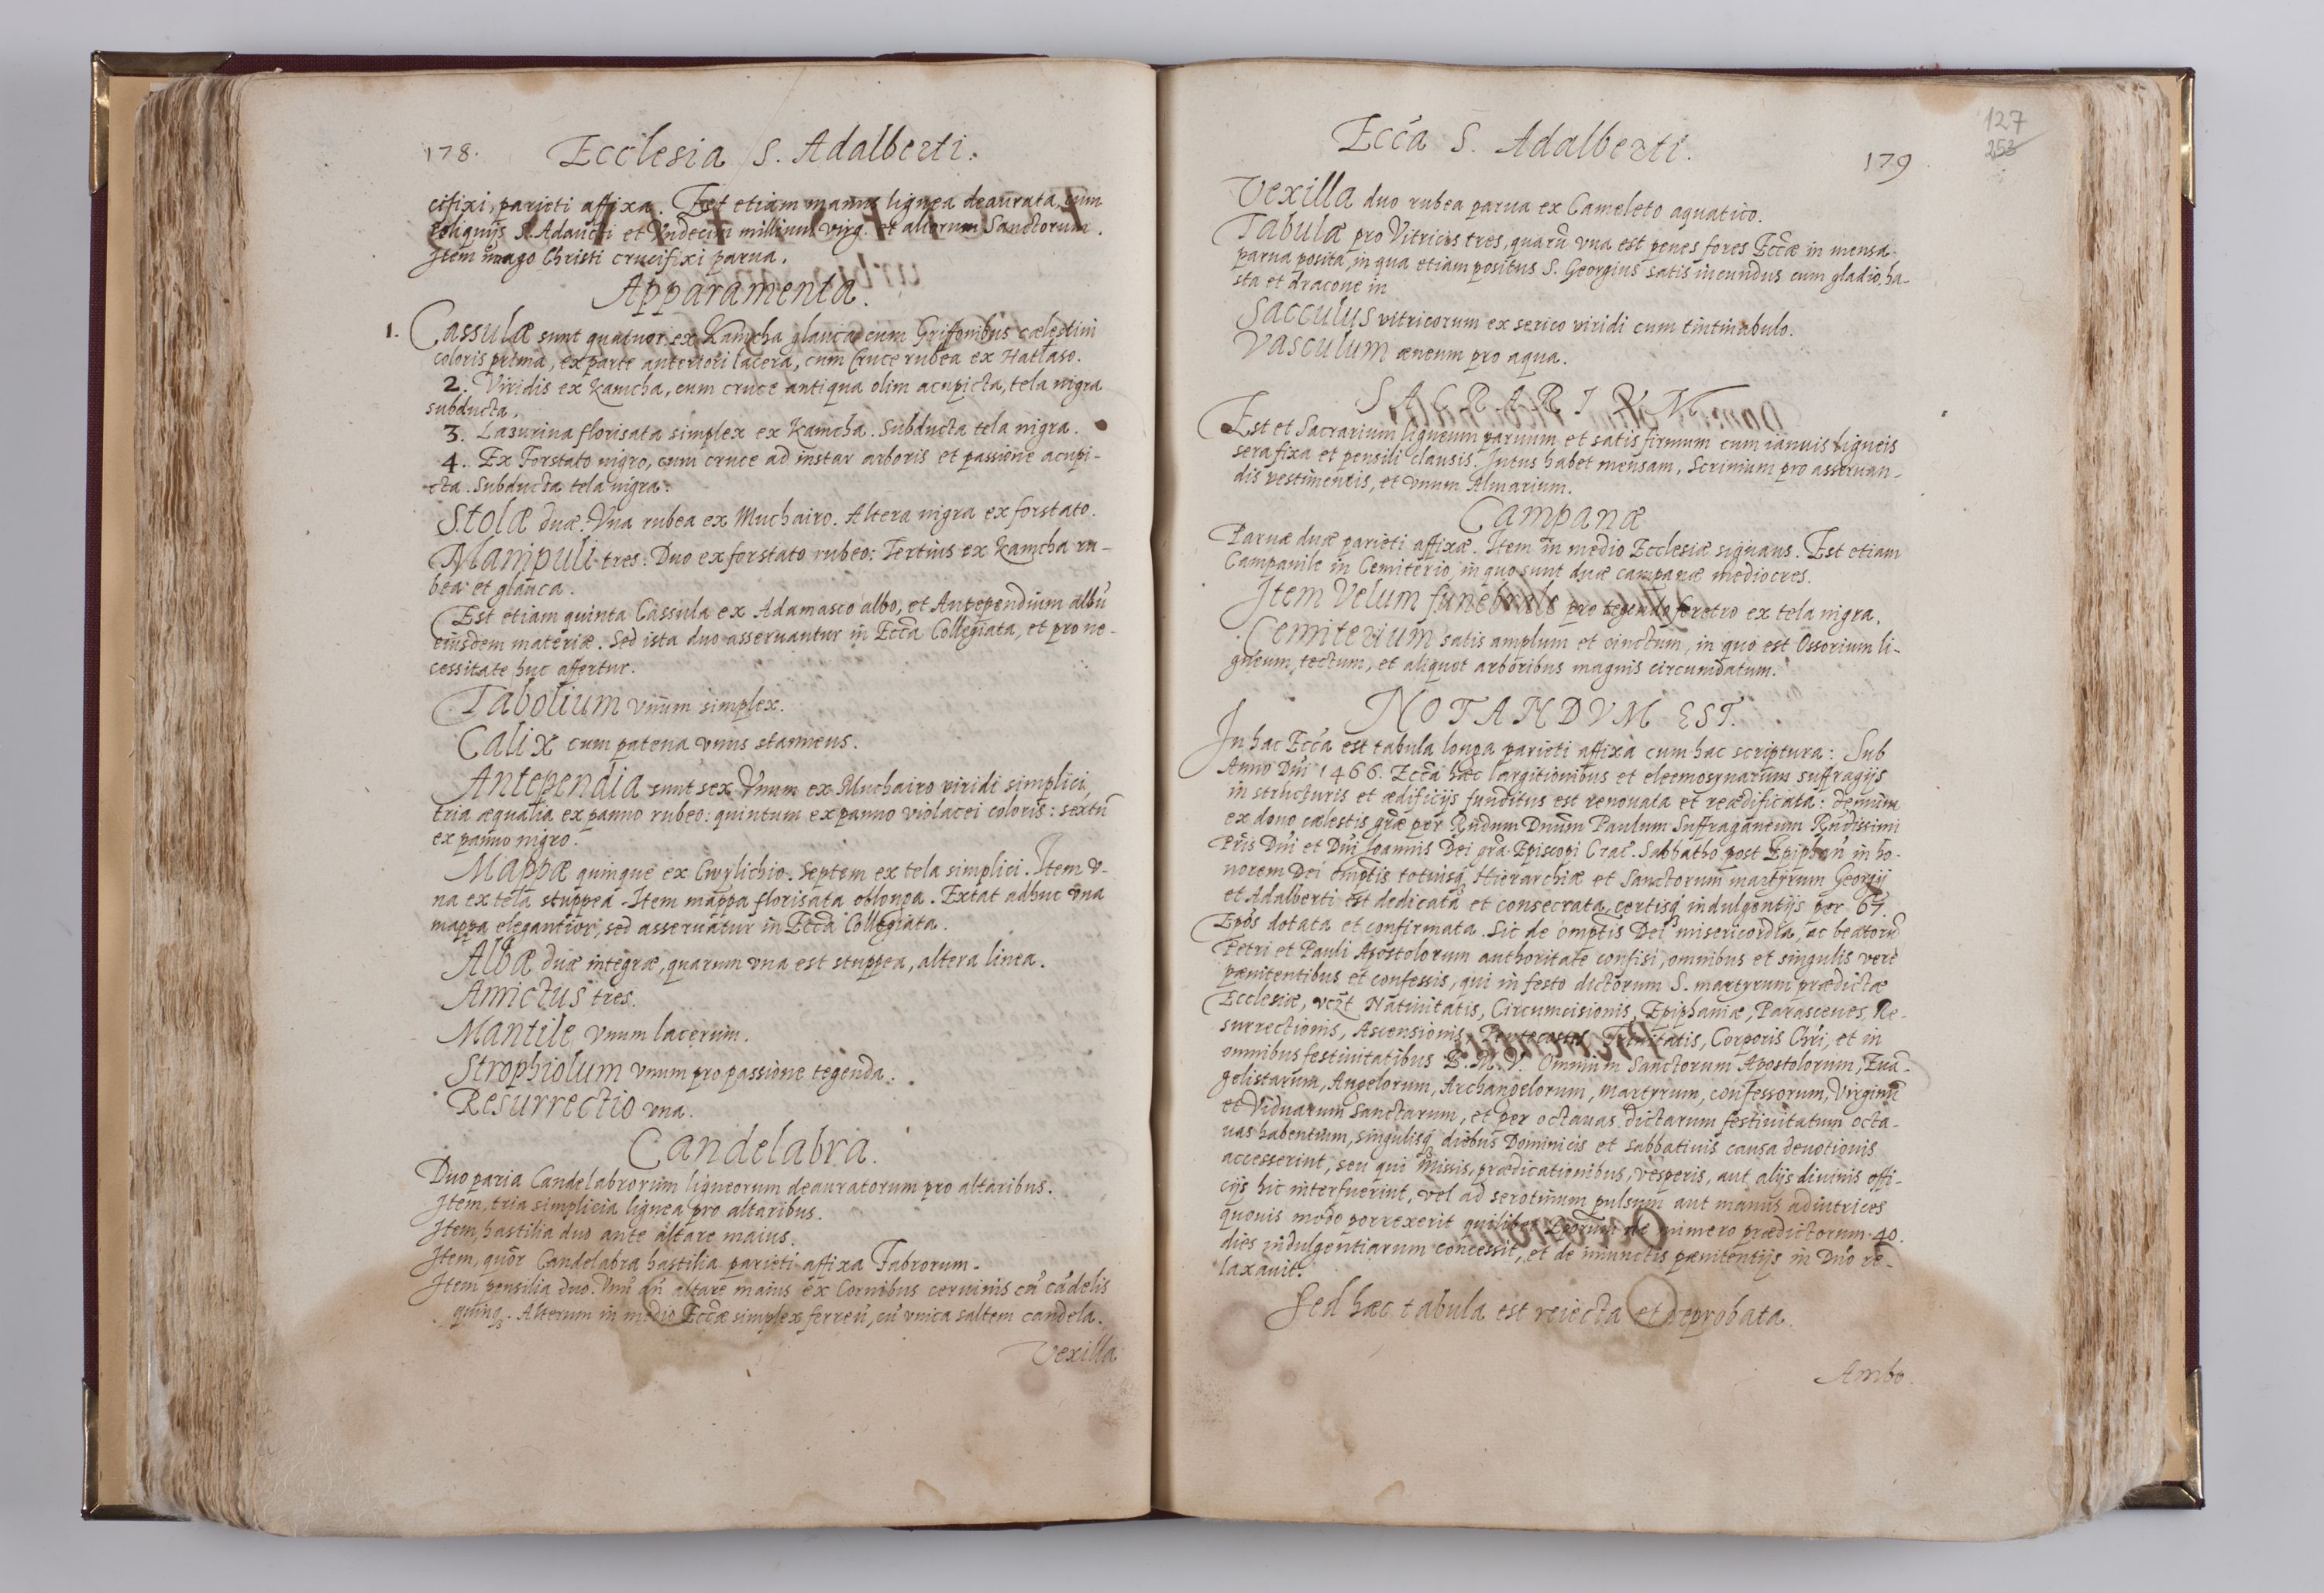 178. Ecclesia S. Adalberti.
cifixi, parieti affixa. Est etiam manus lignea deaurata, cum
reliquijs S. Adaucti et Vndecim millium virg. et aliorum Sanctorum.
Item imago Christi crucifixi parua.
Apparamenta.
1. Cassulæ sunt quatuor. ex Kamcha glauca cum Griffonibus cælestini
coloris prima, ex parte anteriori lacera, cum Cruce rubea ex Hatłaso.
2. Viridis ex kamcha, cum cruce antiqua olim acupicta, tela nigra
subducta.
3. Lasurina florisata simplex ex kamcha. Subducta tela nigra.
4. Ex Forstato nigro, cum cruce ad instar arboris et passione acupi-
cta. Subducta tela nigra.
Stolæ duæ. Vna rubea ex Muchairo. Altera nigra ex forstato.
Manipuli tres. Duo ex forstato rubeo: Tertius ex kamcha ru-
bea et glauca.
Est etiam quinta Cassula ex Adamasco albo, et Antependium albũ
eiusdem materiæ. Sed ista duo asseruantur in Eccã Collegiata, et pro ne-
cessitate huc affertur.
Tabolium vnum simplex.
Calix cum patena vnus stanneus.
Antependia sunt sex Vnum ex Muchairo viridi simplici,
tria æqualia ex panno rubeo: quintum ex panno violacei coloris: sextũ
ex panno nigro.
Mappæ quinque ex Cwylichio. Septem ex tela simplici. Item v-
na ex tela stuppea. Item mappa florisata oblonga. Extat adhuc vna
mappa elegantior, sed asseruatur in Eccã Collegiata.
Albæ duæ integræ, quarum vna est stuppea, altera linea.
Amictus tres.
Mantile vnum lacerum.
Strophiolum vnum pro passione tegenda.
Resurrectio vna.
Candelabra.
Duo paria Candelabrorum ligneorum deauratorum pro altaribus.
Item, tria simplicia lignea pro altaribus.
Item, hastilia duo ante altare maius.
Item, quõr Candelabra hastilia parieti affixa Fabrorum.
Item pensilia duo. Vnũ añ altare maius ex Cornibus ceruinis cũ cãdelis
quinq3. Alterum in medio Eccæ simplex ferreũ, cũ vnica saltem candela.
Vexilla
127
253
Eccã S. Adalberti. 179
Vexilla duo rubea parua ex Cameleto aquatico.
Tabulæ pro Vitricis tres, quarũ vna est penes fores Eccæ in mensa
parua posita, in qua etiam positus S. Georgius satis iucundus cum gladio, ha-
sta et dracone in
Sacculus vitricorum ex serico viridi cum tintinabulo.
Vasculum æneum pro aqua.
SACRARIVM
Est et Sacrarium ligneum paruum et satis firmum cum ianuis ligneis
sera fixa et pensili clausis. Intus habet mensam, Scrinium pro asseruan-
dis vestimentis, et vnum Almarium.
Campanæ
Paruæ duæ parieti affixæ. Item in medio Ecclesiæ signans. Est etiam
Campanile in Cemiterio, in quo sunt duæ campanæ mediocres.
Item Velum funebrale pro tegendo feretro ex tela nigra.
Cemiterium satis amplum et cinctum, in quo est Ossorium li-
gneum, tectum, et aliquot arboribus magnis circumdatum.
NOTANDVM EST.
In hac Eccã est tabula longa parieti affixa cum hac scriptura: Sub
Anno Dñi 1466. Eccã hæc largitionibus et eleemosynarum suffragijs
in structuris et ædificijs funditus est renouata et reædificata: demum
ex dono cælestis grãæ per Rñdum Dnũm Paulum Suffraganeum Rñdissimi
Pr̃is Dñi et Dñi Joannis Dei grã Episcopi Crac̃. Sabbatho post Epiphañ in ho-
norem Dei omptis totiusq3 Hierarchiæ et Sanctorum martyrum Georgij
et Adalberti est dedicata et consecrata, certisq3 indulgentijs per 67.
Epõs dotata et confirmata. Sic de omptis Dei misericordia, ac beatorũ
Petri et Pauli Apostolorum authoritate confisi, omnibus et singulis verè
pænitentibus et confessis, qui in festo dictorum S. martyrum prædictæ
Ecclesiæ, vczt Natiuitatis, Circumcisionis, Epiphaniæ, Parasceues, Re-
surrectionis, Ascensionis, Pentecostes, Trinitatis, Corporis Chr̃i, et in
omnibus festiuitatibus B. M. V. Omnium Sanctorum Apostolorum, Euã-
gelistarum, Angelorum, Archangelorum, martyrum, confessorum, Virginũ
et Viduarum Sanctarum, et per octauas dictarum festiuitatum octa-
uas habentium, singulisq3 diebus Dominicis et Sabbatinis causa deuotionis
accesserint, seu qui missis, prædicationibus, vesperis, aut alijs diuinis offi-
cijs hic interfuerint, vel ad serotinum pulsum aut manus adiutrices
quouis modo porrexerit quilibet Eporum de numero prædictorum 40.
dies indulgentiarum concessit, et de iniunctis pænitentijs in Dño re-
laxauit.
Sed hæc tabula est reiecta et reprobata.
Ambo.